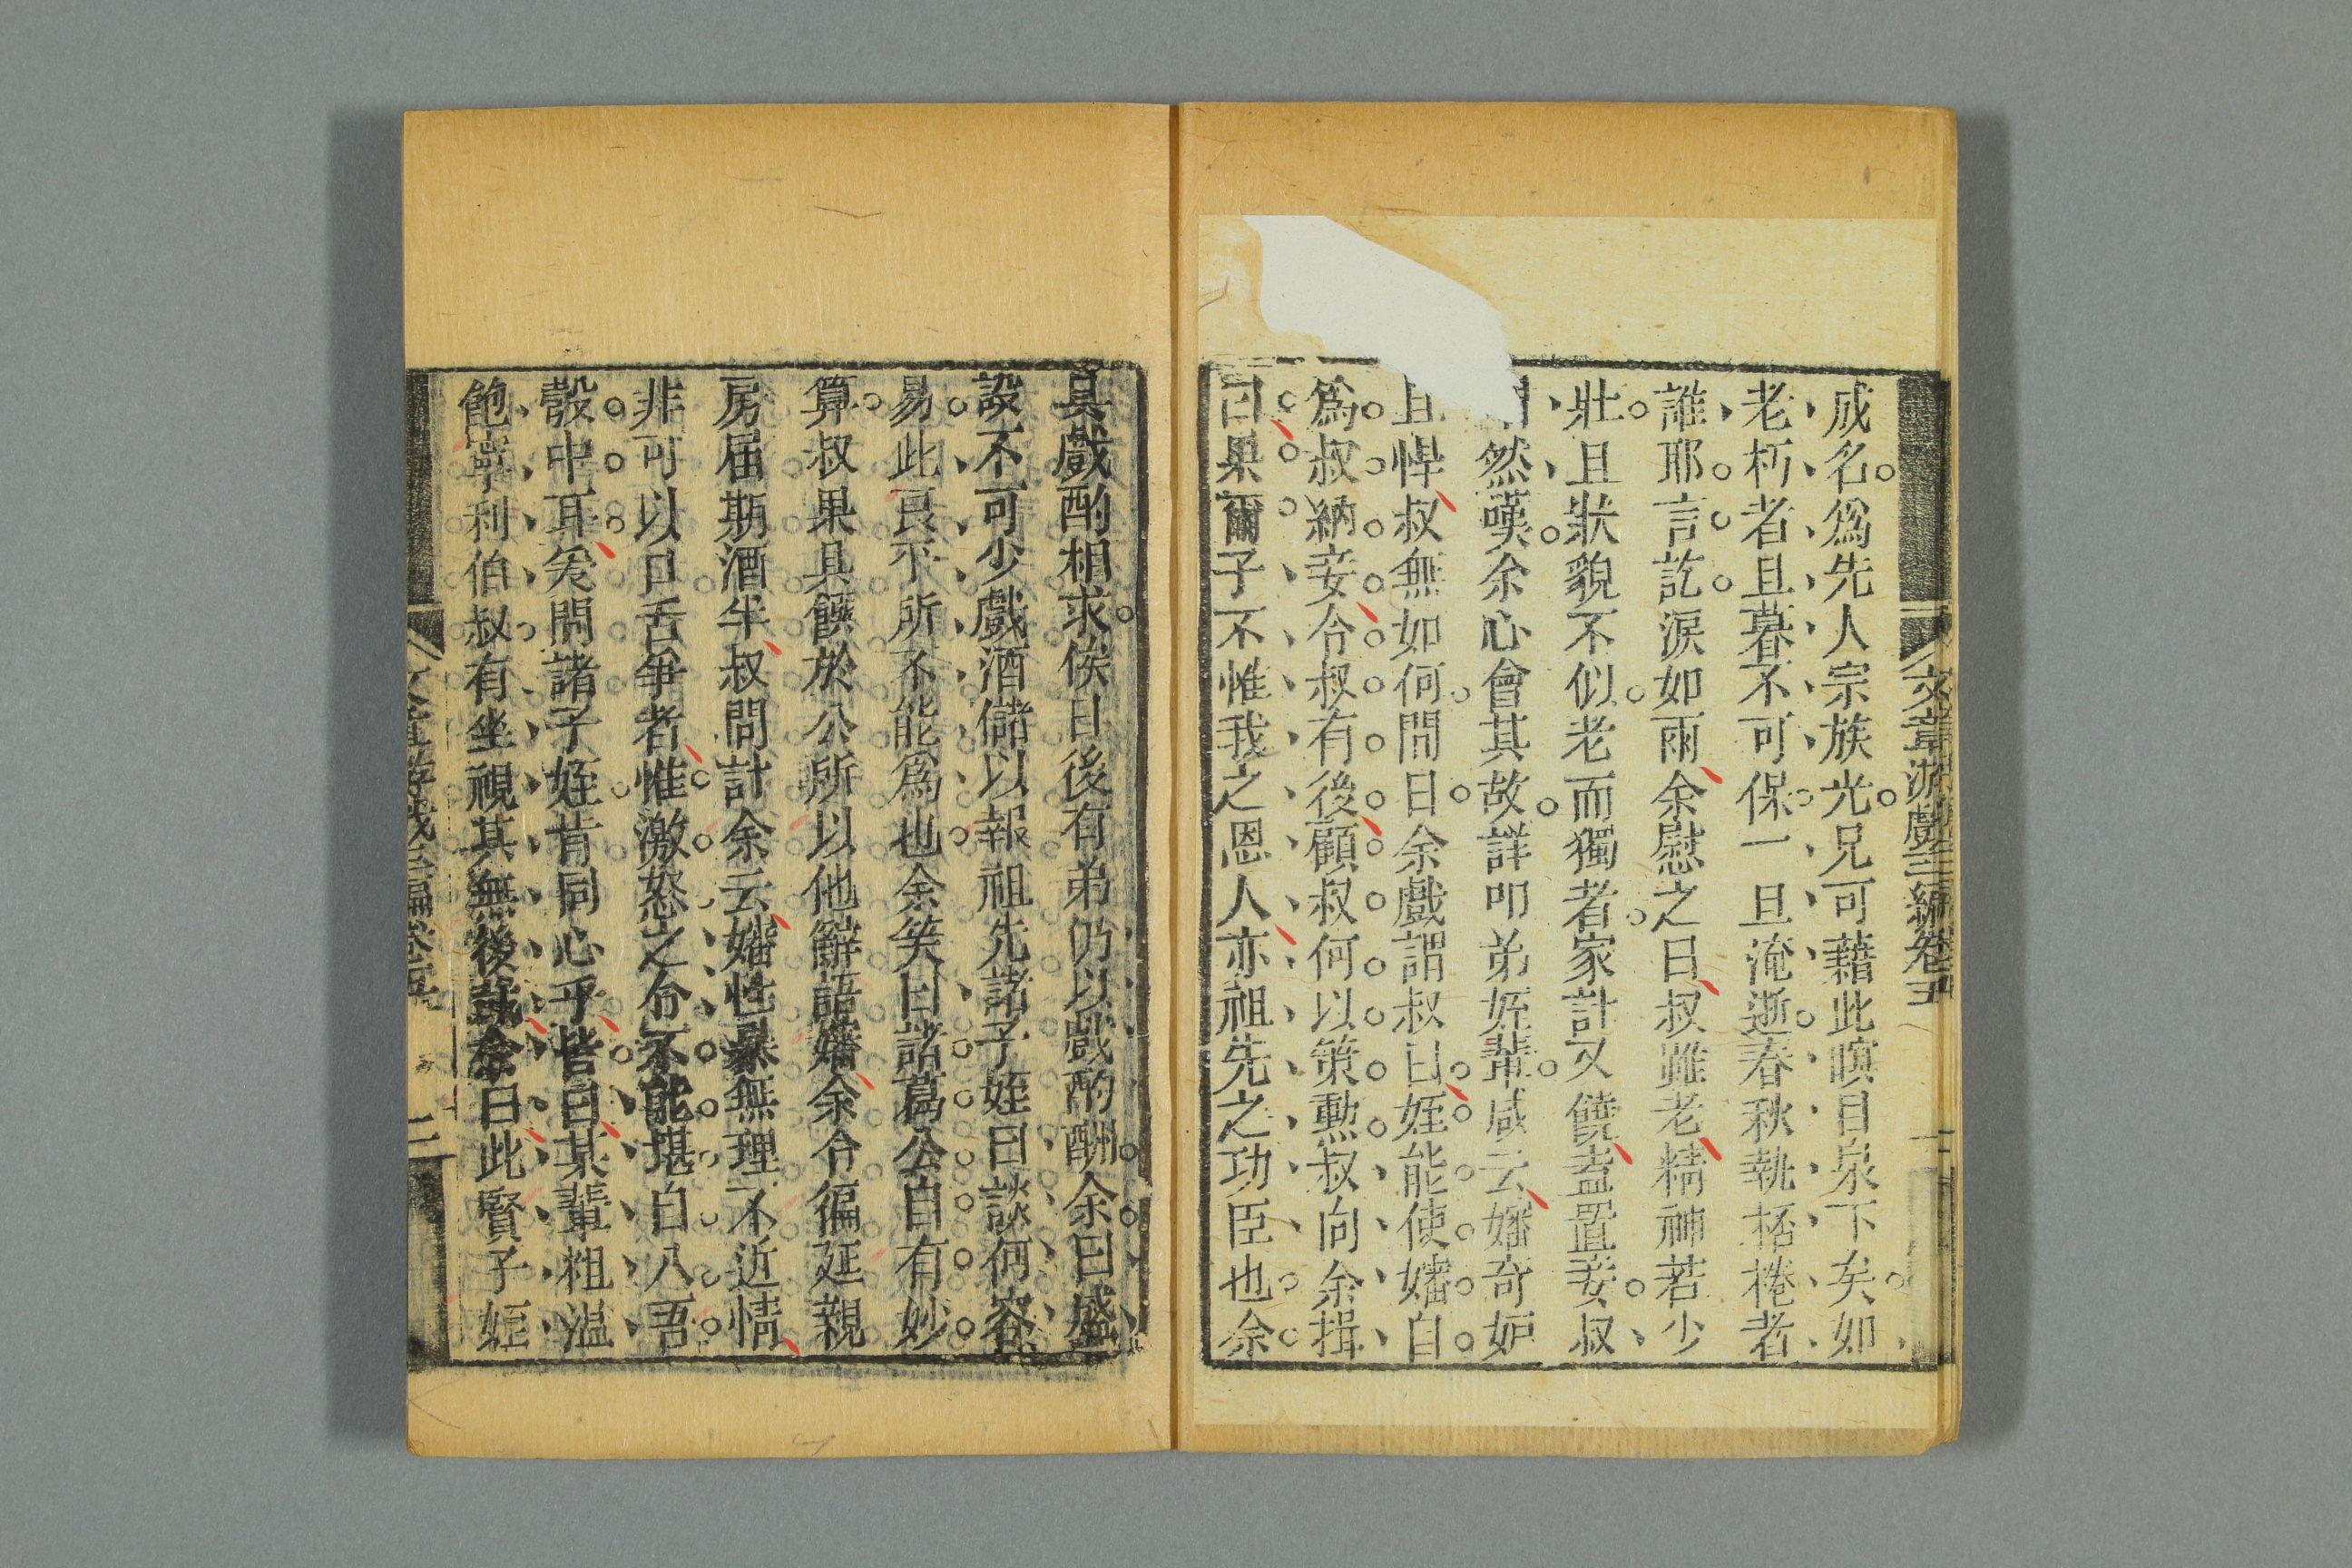 文章游戲三編卷五
成名爲先人宗族光兄可藉此瞑目泉下矣如
老朽者且暮不可保一旦淹逝春秋執桮棬者
誰耶言訖淚如雨余慰之曰叔雖老精神若少
壯且狀貌不似老而獨者家計又饒盍置妾叔
然嘆余心會其故詳叩弟姪輩咸云嬸奇妒
且悍叔無如何間日余戲謂叔曰姪能使嬸自
爲叔納妾令叔有後顧叔何以策勳叔向余揖
曰果爾子不惟我之恩人亦祖先之功臣也余
具戲酌相求俟日後有弟仍以戲酌酬余曰盛
設不可少戲酒儲以報祖先諸子姪曰談何容
易此艮平所不能爲也余笑曰諸葛公自有妙
算叔果具饌於公所以他辭語嬸余令徧延親
房届期酒半叔問計余云嬸性暴無理不近情
非可以口舌爭者惟激怒之令不能堪自入吾
彀中耳矣問諸子姪肯同心乎皆曰某輩粗溫
飽寧利伯叔有坐視其無後誠余曰此賢子姪
文章游戲三編卷五
二